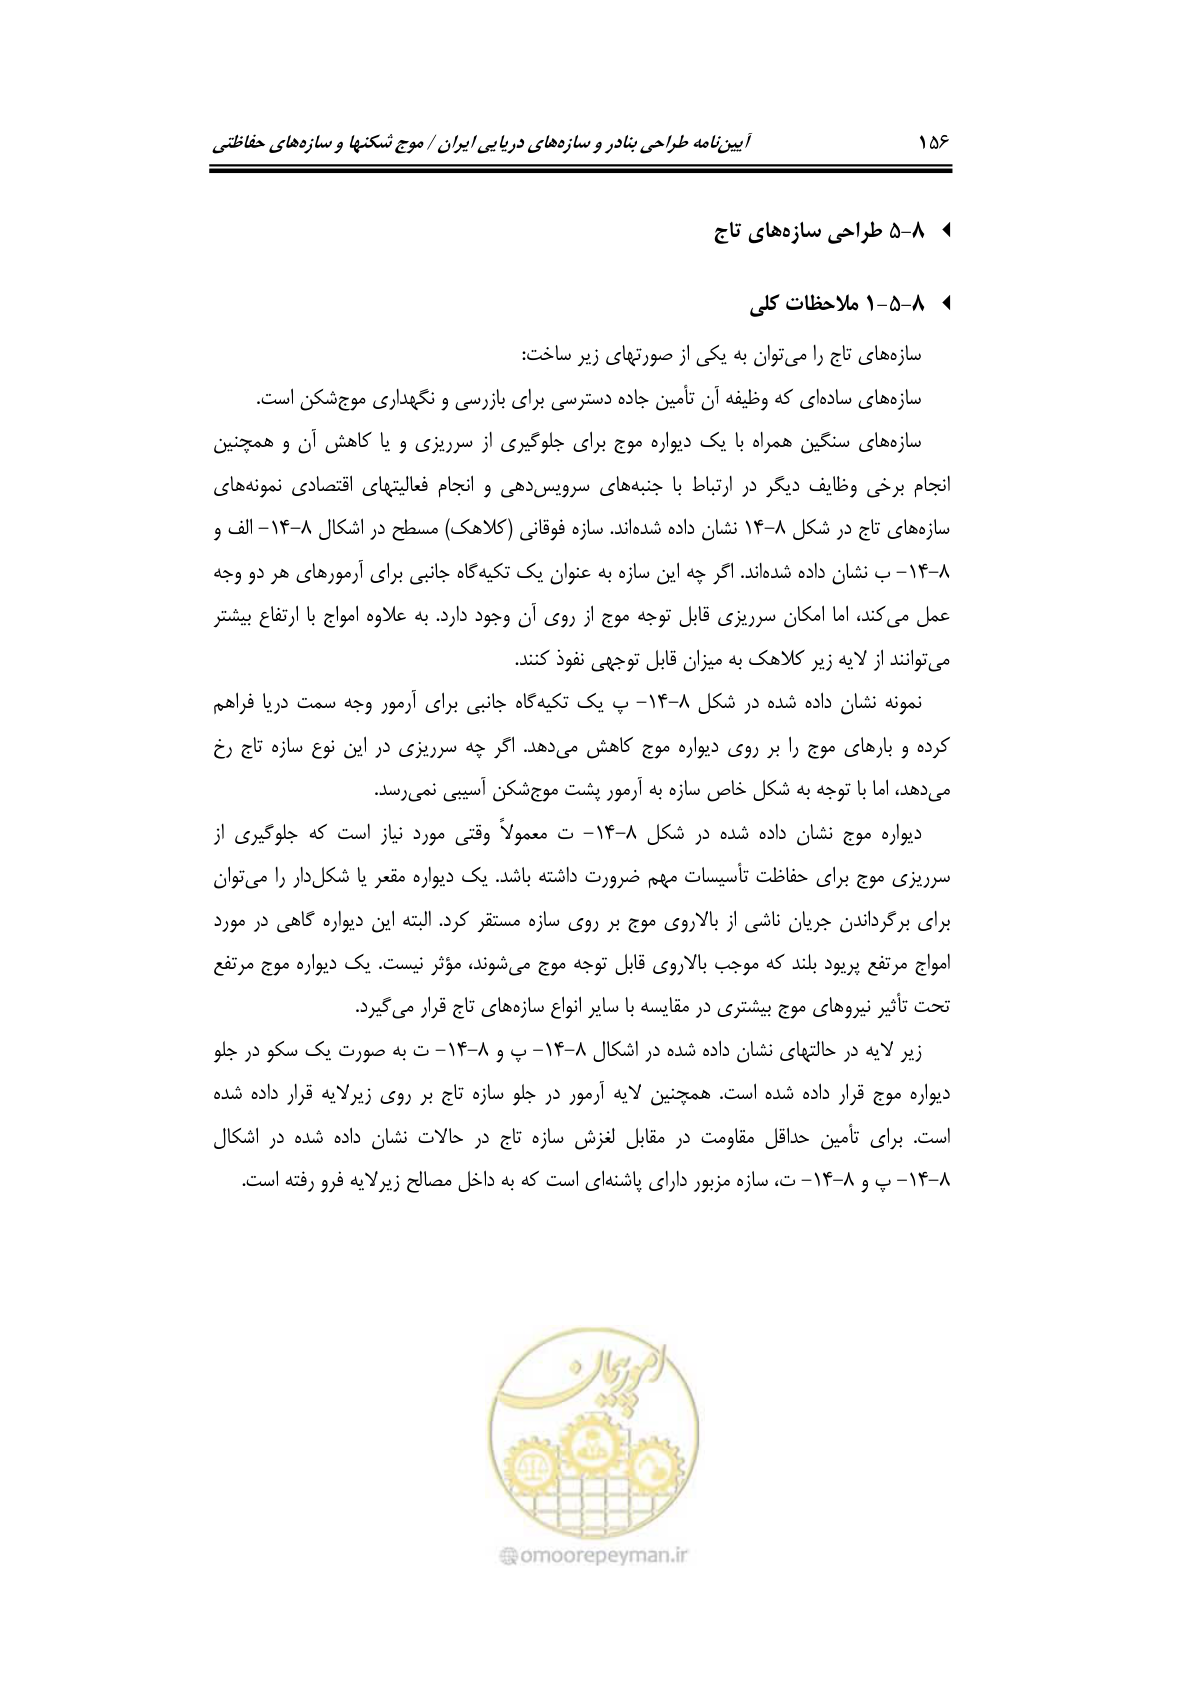 ۱۵۶ آیین‌نامه طراحی بنادر و سازه‌های دریایی ایران / موج شکنها و سازه‌های حفاظتی
۸-۵ طراحی سازه‌های تاج
۸-۵-۱ ملاحظات کلی
سازه‌های تاج را می‌توان به یکی از صورتهای زیر ساخت:
سازه‌های ساده‌ای که وظیفه آن تأمین جاده دسترسی برای بازرسی و نگهداری موج‌شکن است.
سازه‌های سنگین همراه با یک دیواره موج برای جلوگیری از سرریزی و یا کاهش آن و همچنین
انجام برخی وظایف دیگر در ارتباط با جنبه‌های سرویس‌دهی و انجام فعالیتهای اقتصادی نمونه‌های
سازه‌های تاج در شکل ۸-۱۴ نشان داده شده‌اند. سازه فوقانی (کلاهک) مسطح در اشکال ۸-۱۴- الف و
۸-۱۴- ب نشان داده شده‌اند. اگر چه این سازه به عنوان یک تکیه‌گاه جانبی برای آرمورهای هر دو وجه
عمل می‌کند، اما امکان سرریزی قابل توجه موج از روی آن وجود دارد. به علاوه امواج با ارتفاع بیشتر
می‌توانند از لایه زیر کلاهک به میزان قابل توجهی نفوذ کنند.
نمونه نشان داده شده در شکل ۸-۱۴- پ یک تکیه‌گاه جانبی برای آرمور وجه سمت دریا فراهم
کرده و بارهای موج را بر روی دیواره موج کاهش می‌دهد. اگر چه سرریزی در این نوع سازه تاج رخ
می‌دهد، اما با توجه به شکل خاص سازه به آرمور پشت موج‌شکن آسیبی نمی‌رسد.
دیواره موج نشان داده شده در شکل ۸-۱۴- ت معمولاً وقتی مورد نیاز است که جلوگیری از
سرریزی موج برای حفاظت تأسیسات مهم ضرورت داشته باشد. یک دیواره مقعر یا شکل‌دار را می‌توان
برای برگرداندن جریان ناشی از بالاروی موج بر روی سازه مستقر کرد. البته این دیواره گاهی در مورد
امواج مرتفع پریود بلند که موجب بالاروی قابل توجه موج می‌شوند، مؤثر نیست. یک دیواره موج مرتفع
تحت تأثیر نیروهای موج بیشتری در مقایسه با سایر انواع سازه‌های تاج قرار می‌گیرد.
زیر لایه در حالتهای نشان داده شده در اشکال ۸-۱۴- پ و ۸-۱۴- ت به صورت یک سکو در جلو
دیواره موج قرار داده شده است. همچنین لایه آرمور در جلو سازه تاج بر روی زیرلایه قرار داده شده
است. برای تأمین حداقل مقاومت در مقابل لغزش سازه تاج در حالات نشان داده شده در اشکال
۸-۱۴- پ و ۸-۱۴- ت، سازه مزبور دارای پاشنه‌ای است که به داخل مصالح زیرلایه فرو رفته است.
امور پیمان
omoorepeyman.ir